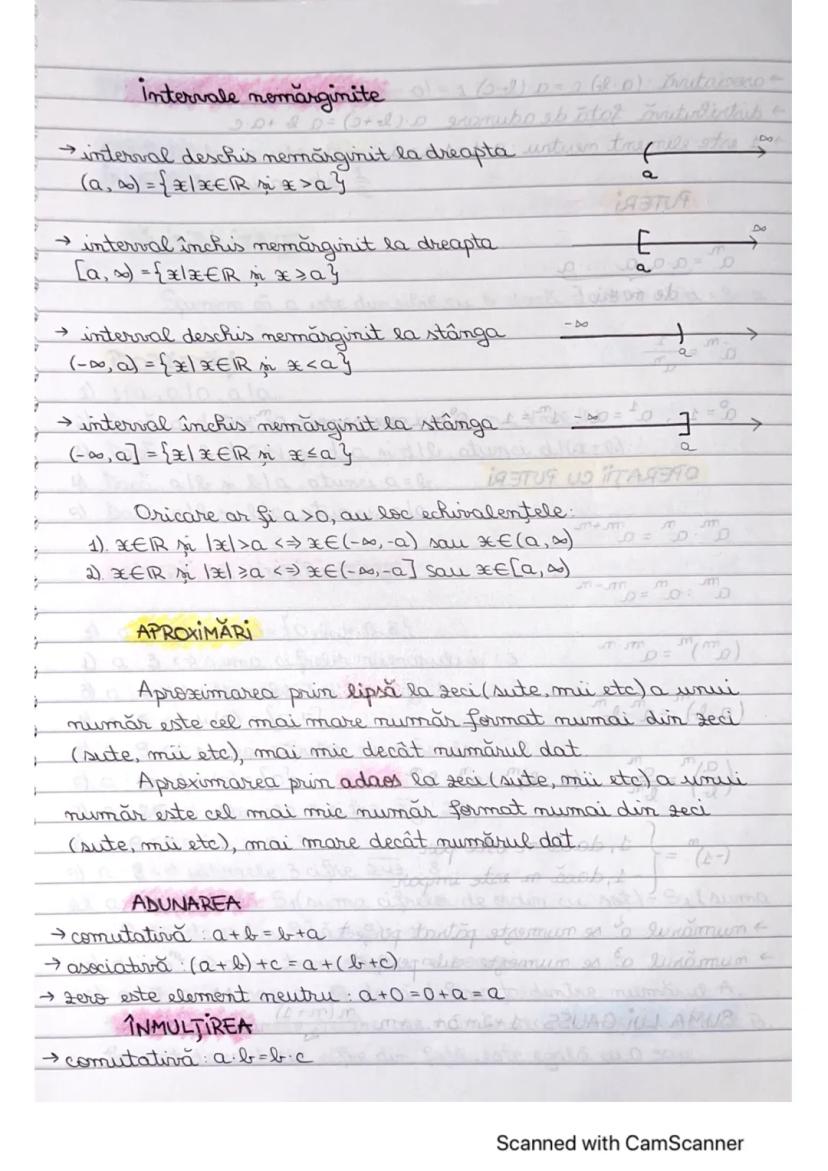 Intervale nemărginite
→ interval deschis nemărginit la dreapta
(a, ∞) = {x|x∈ℝ și x>a}
∞
a
→ interval închis nemărginit la dreapta
[a, ∞) = {x|x∈ℝ și x≥a}
∞
a
→ interval deschis nemărginit la stânga
(-∞, a) = {x|x∈ℝ și x<a}
-∞
a
→ interval închis nemărginit la stânga
(-∞, a] = {x|x∈ℝ și x≤a}
-∞
a
Oricare ar fi a>0, au loc echivalențele:
1). x∈ℝ și |x|>a <=> x∈(-∞,-a) sau x∈(a, ∞)
2). x∈ℝ și |x|≥a <=> x∈(-∞,-a] sau x∈[a, ∞)
APROXIMĂRI
Aproximarea prin lipsă la zeci (sute, mii etc) a unui
număr este cel mai mare număr format numai din zeci
(sute, mii etc), mai mic decât numărul dat.
Aproximarea prin adaos la zeci (sute, mii etc) a unui
număr este cel mai mic număr format numai din zeci
(sute, mii etc), mai mare decât numărul dat.
ADUNAREA
→ comutativă : a+b=b+a
→ asociativă : (a+b)+c=a+(b+c)
→ zero este element neutru : a+0=0+a=a
ÎNMULȚIREA
→ comutativă : a·b=b·c
Scanned with CamScanner